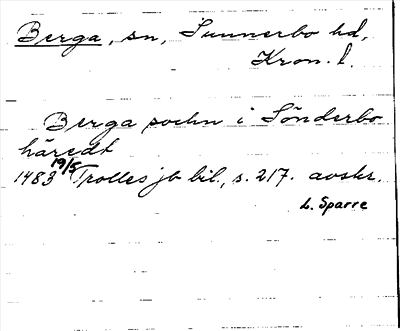 Berga, sn, Sunnerbo hd,
Kron. l.
Berga sochn i Sönderbo
häredt
1483 19/5 Trolles jb bil., s. 217. avskr.
L. Sparre